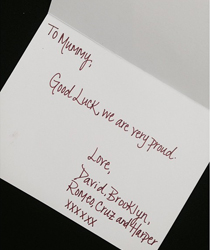 To Mummy,
Good Luck, we are very proud.
Love,
David, Brooklyn,
Romeo, Cruz and Harper
xxxxxx